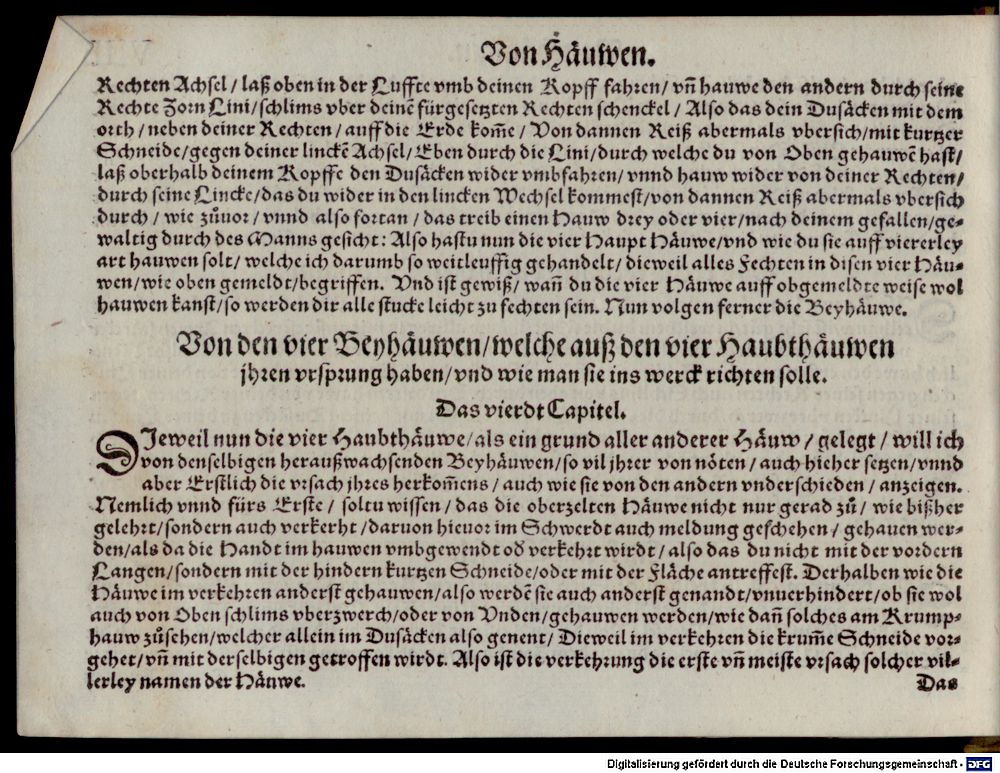 Von Häuwen.
Rechten Achsel / laß oben in der Luffte vmb deinen Kopff fahren / vn̄ hauwe den andern durch seine
Rechte Zorn Lini / schlims vber deinē fürgesetzten Rechten schenckel / Also das dein Dusäcken mit dem
orth / neben deiner Rechten / auff die Erde kom̄e / Von dannen Reiß abermals vbersich / mit kurtzer
Schneide / gegen deiner linckē Achsel / Eben durch die Lini / durch welche du von Oben gehauwē hast /
laß oberhalb deinem Kopffe den Dusäcken wider vmbfahren / vnnd hauw wider von deiner Rechten /
durch seine Lincke / das du wider in den lincken Wechsel kommest / von dannen Reiß abermals vbersich
durch / wie zůuor / vnnd also fortan / das treib einen Hauw drey oder vier / nach deinem gefallen / ge-
waltig durch des Manns gesicht: Also hastu nun die vier Haupt Häuwe / vnd wie du sie auff viererley
art hauwen solt / welche ich darumb so weitleuffig gehandelt / dieweil alles Fechten in disen vier Häu-
wen / wie oben gemeldt / begriffen. Vnd ist gewiß / wan̄ du die vier Häuwe auff obgemeldte weise wol
hauwen kanst / so werden dir alle stucke leicht zu fechten sein. Nun volgen ferner die Beyhäuwe.
Von den vier Beyhäuwen / welche auß den vier Haubthäuwen
jhren vrsprung haben / vnd wie man sie ins werck richten solle.
Das vierdt Capitel.
DIeweil nun die vier Haubthäuwe / als ein grund aller anderer Häuw / gelegt / will ich
von denselbigen heraußwachsenden Beyhäuwen / so vil jhrer von nöten / auch hieher setzen / vnnd
aber Erstlich die vrsach jhres herkom̄ens / auch wie sie von den andern vnderschieden / anzeigen.
Nemlich vnnd fürs Erste / soltu wissen / das die oberzelten Häuwe nicht nur gerad zů / wie bißher
gelehrt / sondern auch verkerht / daruon hieuor im Schwerdt auch meldung geschehen / gehauen wer-
den / als da die Handt im hauwen vmbgewendt od̄ verkehrt wirdt / also das du nicht mit der vordern
Langen / sondern mit der hindern kurtzen Schneide / oder mit der Fläche antreffest. Derhalben wie die
Häuwe im verkehren anderst gehauwen / also werdē sie auch anderst genandt / vnuerhindert / ob sie wol
auch von Oben schlims vberzwerch / oder von Vnden / gehauwen werden / wie dan̄ solches am Krump-
hauw zůsehen / welcher allein im Dusäcken also genent / Dieweil im verkehren die krum̄e Schneide vor-
gehet / vn̄ mit derselbigen getroffen wirdt. Also ist die verkehrung die erste vn̄ meiste vrsach solcher vil-
lerley namen der Häuwe.
Das
Digitalisierung gefördert durch die Deutsche Forschungsgemeinschaft - DFG